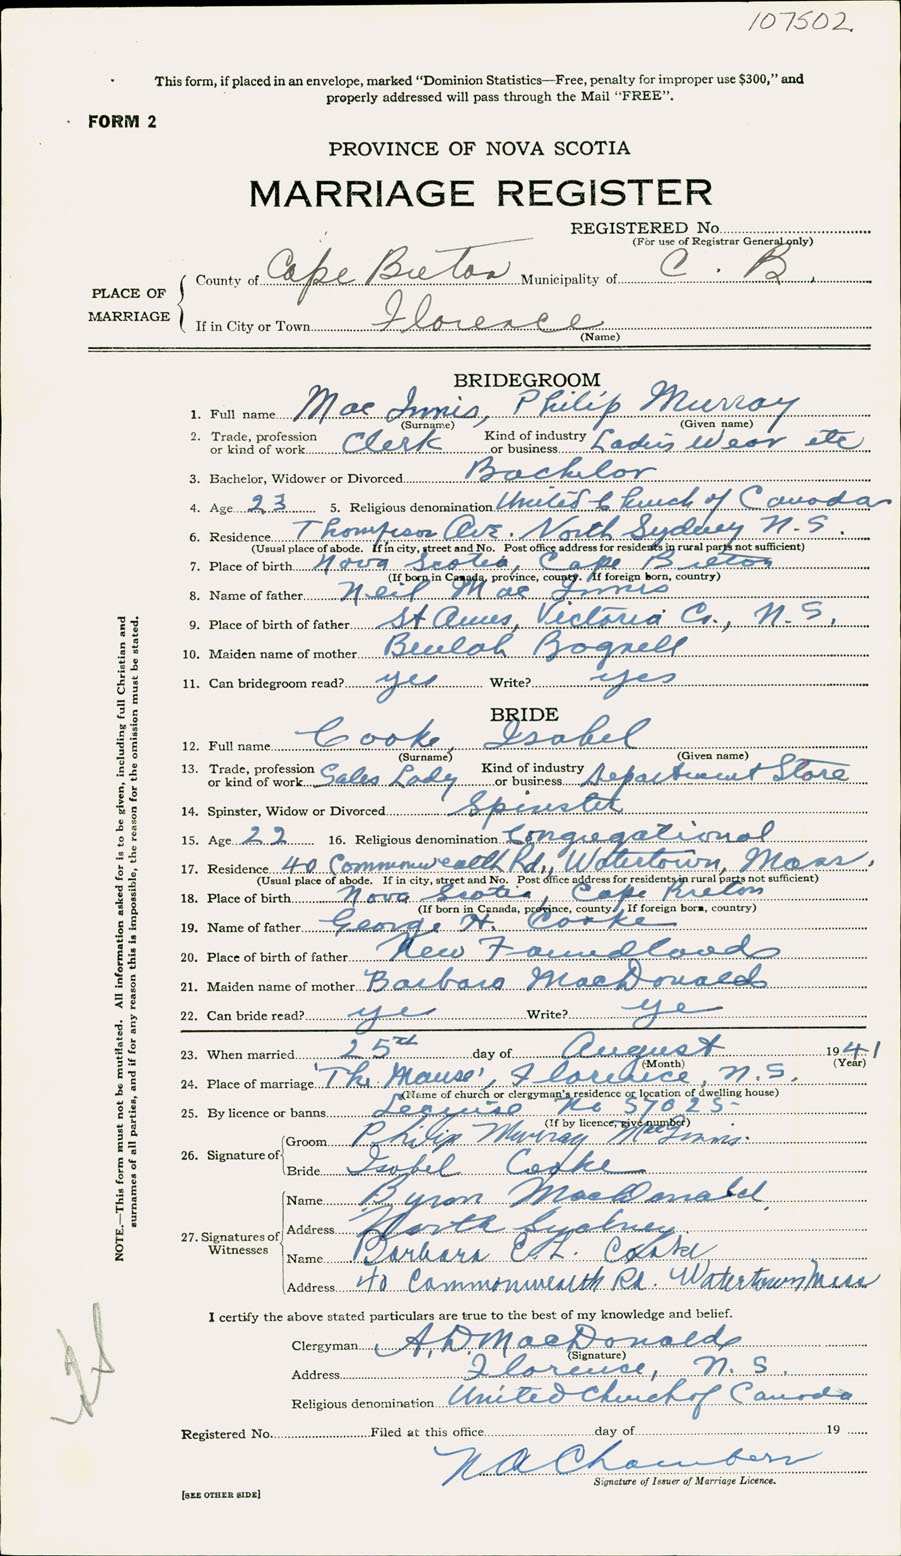 107502
This form, if placed in an envelope, marked "Dominion Statistics—Free, penalty for improper use $300," and
properly addressed will pass through the Mail "FREE".
FORM 2
PROVINCE OF NOVA SCOTIA
MARRIAGE REGISTER
REGISTERED No.
(For use of Registrar General only)
PLACE OF MARRIAGE
County of Cape Breton Municipality of C. B.
If in City or Town Florence
(Name)
BRIDEGROOM
1. Full name Mac Innis, Philip Murray
(Surname) (Given name)
2. Trade, profession or kind of work Clerk Kind of industry or business Ladies Wear etc
3. Bachelor, Widower or Divorced Bachelor
4. Age 23 5. Religious denomination United Church of Canada
6. Residence Thompson Ave. North Sydney N.S.
(Usual place of abode. If in city, street and No. Post office address for residents in rural parts not sufficient)
7. Place of birth Nova Scotia, Cape Breton
(If born in Canada, province, county. If foreign born, country)
8. Name of father Neil Mac Innis
9. Place of birth of father St Anns, Victoria Co., N.S.
10. Maiden name of mother Beulah Bagnell
11. Can bridegroom read? yes Write? yes
BRIDE
12. Full name Cooke, Isabel
(Surname) (Given name)
13. Trade, profession or kind of work Sales Lady Kind of industry or business Department Store
14. Spinster, Widow or Divorced Spinster
15. Age 22 16. Religious denomination Congregational
17. Residence 40 Commonwealth Rd., Watertown, Mass.
(Usual place of abode. If in city, street and No. Post office address for residents in rural parts not sufficient)
18. Place of birth Nova Scotia, Cape Breton
(If born in Canada, province, county. If foreign born, country)
19. Name of father George H. Cooke
20. Place of birth of father New Foundland
21. Maiden name of mother Barbara MacDonald
22. Can bride read? yes Write? yes
23. When married 25th day of August 1941
(Month) (Year)
24. Place of marriage 'The Manse', Florence, N.S.
(Name of church or clergyman's residence or location of dwelling house)
25. By licence or banns No 57025
(If by licence, give number)
26. Signature of Groom Philip Murray MacInnis.
Bride Isobel Cooke
27. Signatures of Witnesses
Name Byron MacDonald
Address North Sydney
Name Barbara E. L. Cooke
Address 40 Commonwealth Rd. Watertown, Mass
I certify the above stated particulars are true to the best of my knowledge and belief.
Clergyman A. D. MacDonald
(Signature)
Address Florence, N.S.
Religious denomination United Church of Canada
Registered No. Filed at this office day of 19
N A Chambers
Signature of Issuer of Marriage Licence.
[SEE OTHER SIDE]
NOTE.—This form must not be mutilated. All information asked for is to be given, including full Christian and
surnames of all parties, and if for any reason this is impossible, the reason for the omission must be stated.